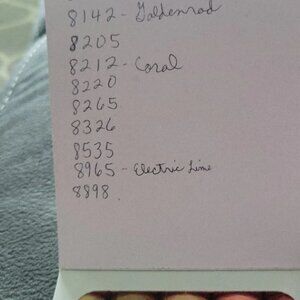 8142 - Goldenrod
8205
8212 - Coral
8220
8265
8326
8535
8965 - Electric Lime
8898